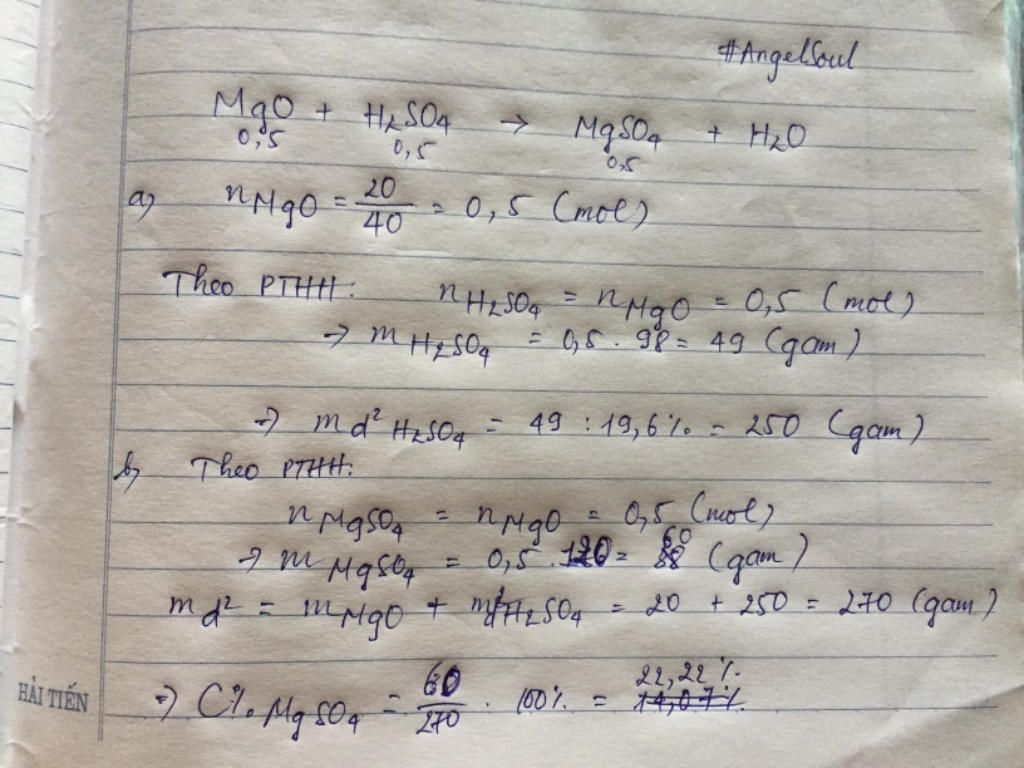 #AngelSoul
MgO + H₂SO₄ → MgSO₄ + H₂O
0,5 0,5 0,5
a, nMgO = 20/40 = 0,5 (mol)
Theo PTHH: nH₂SO₄ = nMgO = 0,5 (mol)
→ mH₂SO₄ = 0,5 . 98 = 49 (gam)
=> md² H₂SO₄ = 49 : 19,6% = 250 (gam)
b, Theo PTHH:
nMgSO₄ = nMgO = 0,5 (mol)
→ mMgSO₄ = 0,5 . 120 = 60 (gam)
md² = mMgO + md²H₂SO₄ = 20 + 250 = 270 (gam)
=> C%MgSO₄ = 60/270 . 100% = 22,22% 14,07%
HẢI TIẾN